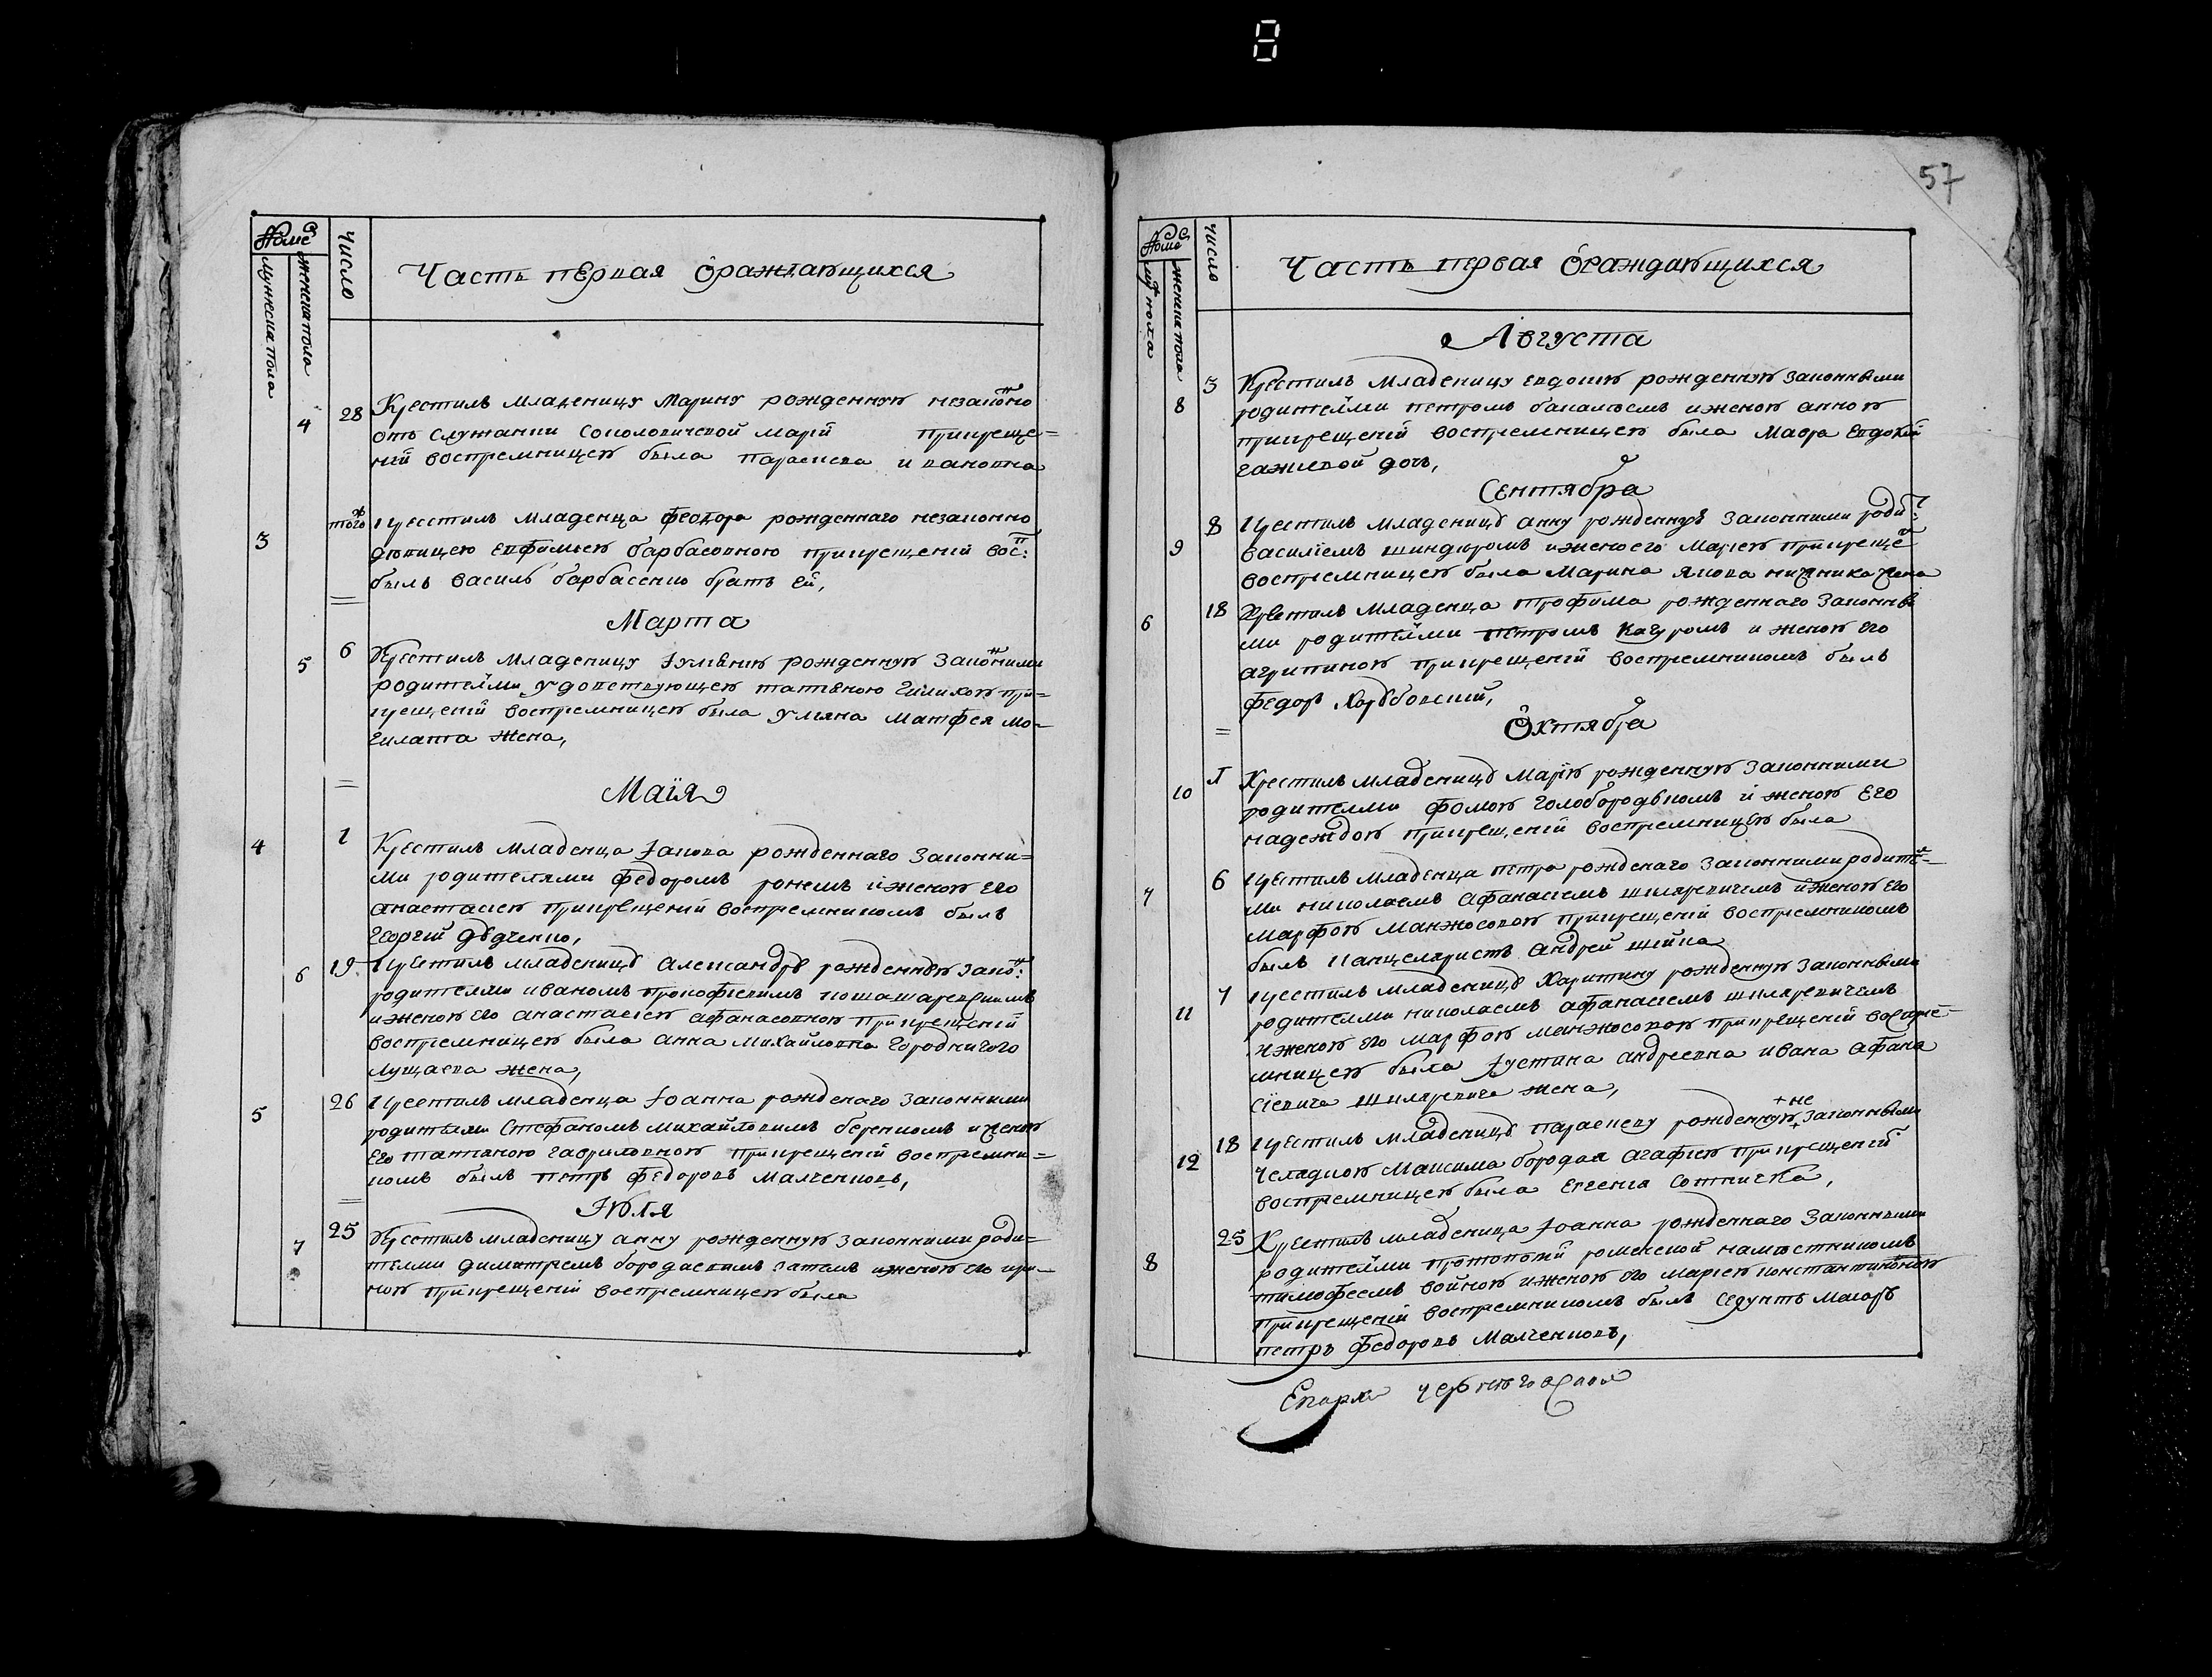 57
Номе
Число
Мужеска пола
женска пола
Часть первая Ораждающихся
4 28 Крестилъ младеницу Марину рожденную незаконно
отъ служанки Соколовичевой Маріи прикреще=
ніи восприемницею была Параскева ивановна
3 того ж крестилъ младенца Феодора рожденнаго незаконно
дювицею Евфимиею барбасовною прикрещеніи вос:
былъ василь барбасенко братъ Ей,
Марта
5 6 Крестилъ младеницу Іулиѣнию рожденную законними
родителми удовствующею татѣною Гилихою при=
крещеніи восприемницею была Уляна Матфея Мо=
гилата жена,
Маія
4 1 Крестилъ младенца Іакова рожденнаго Законни=
ми родителями Федоромъ рокемъ и женою его
анастасиею прикрещеніи восприемникомъ былъ
Георгій дѣдченко,
6 19 крестилъ младеницѣ Александрѣ рожденнѣю зако:
родителями иваномъ прокофиевимъ
и женою его анастасиею афанасовною прикрещеніи
восприемницею была анна Михайловна Городничого
лущаева жена,
5 26 крестилъ младенца Іоанна рожденаго Законними
родителями Стефаномъ Михайловимъ беренкомъ и женою
его татиною гавриловною прикрещеніи восприемни=
комъ былъ петръ Федоровъ Малченковъ,
Июля
7 25 Крестилъ младеницу анну рожденную законними роди=
телми димитриемъ бородаевимъ зятемъ и женою его ири=
ною прикрещеніи восприемницею была
Номе
Число
муж пола
женска пола
Часть первая Ораждающихся
Августа
8 3 Крестилъ младеницу евдокию рожденную законными
родителми петромъ бакалѣемъ и женою анною
прикрещеніи восприемницею была Мавра Евдокіи
гажиевой дочь,
Сентября
9 8 крестилъ младеницѣ анну рожденную законними роди:
василиемъ шиндюромъ и женою его Мариею прикреще
восприемницею была Марина Якова жена
6 18 Крестилъ младенца трофима рожденнаго Законны
ми родителми петромъ Качуромъ и женою его
агрипиною прикрещеніи восприемникомъ былъ
Федоръ Харѣбовскій,
Октября
10 1 Крестилъ младеницѣ Марию рожденную законними
родителми Фомою Голобородькомъ и женою его
надеждою прикрещеніи восприемницею была
7 6 крестилъ младенца петра рожденаго законними родите=
ми николаемъ Афанасиемъ шкляревичемъ и женою его
Марфою Манжосовою прикрещеніи восприемникомъ
былъ канцеляристъ андрей шейка
11 7 крестилъ младеницѣ Харитину рожденную законными
родителми николаемъ афанасиемъ шкляревичемъ
и женою его марфою манжосовою прикрещеніи восприе=
мницею была Іустина андреевна ивана афана
сіевича шкляревича жена,
12 18 крестилъ младеницѣ параскеву рожденную +не законными
челядною Максима бородая агафиею прикрещеніи
восприемницею была евгения Сотничка,
8 25 Крестилъ младеница Іоанна рожденнаго законними
родителми протопопіи роменской намѣстникомъ
тимофеемъ войною и женою его мариею константиновною
прикрещеніи восприемникомъ былъ секунтъ маіоръ
петръ Федоровъ Малченковъ,